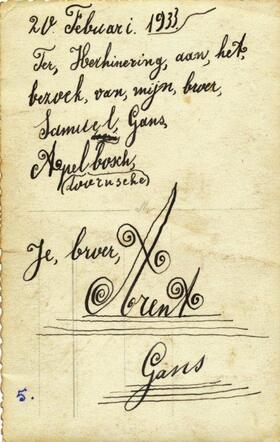 20 Februari. 1933
Ter, Herhinering, aan, het,
bezoek, van, mijn, broer,
Samuel, Gans,
Apelbosch,
Je, broer,
Arent
Gans
5.